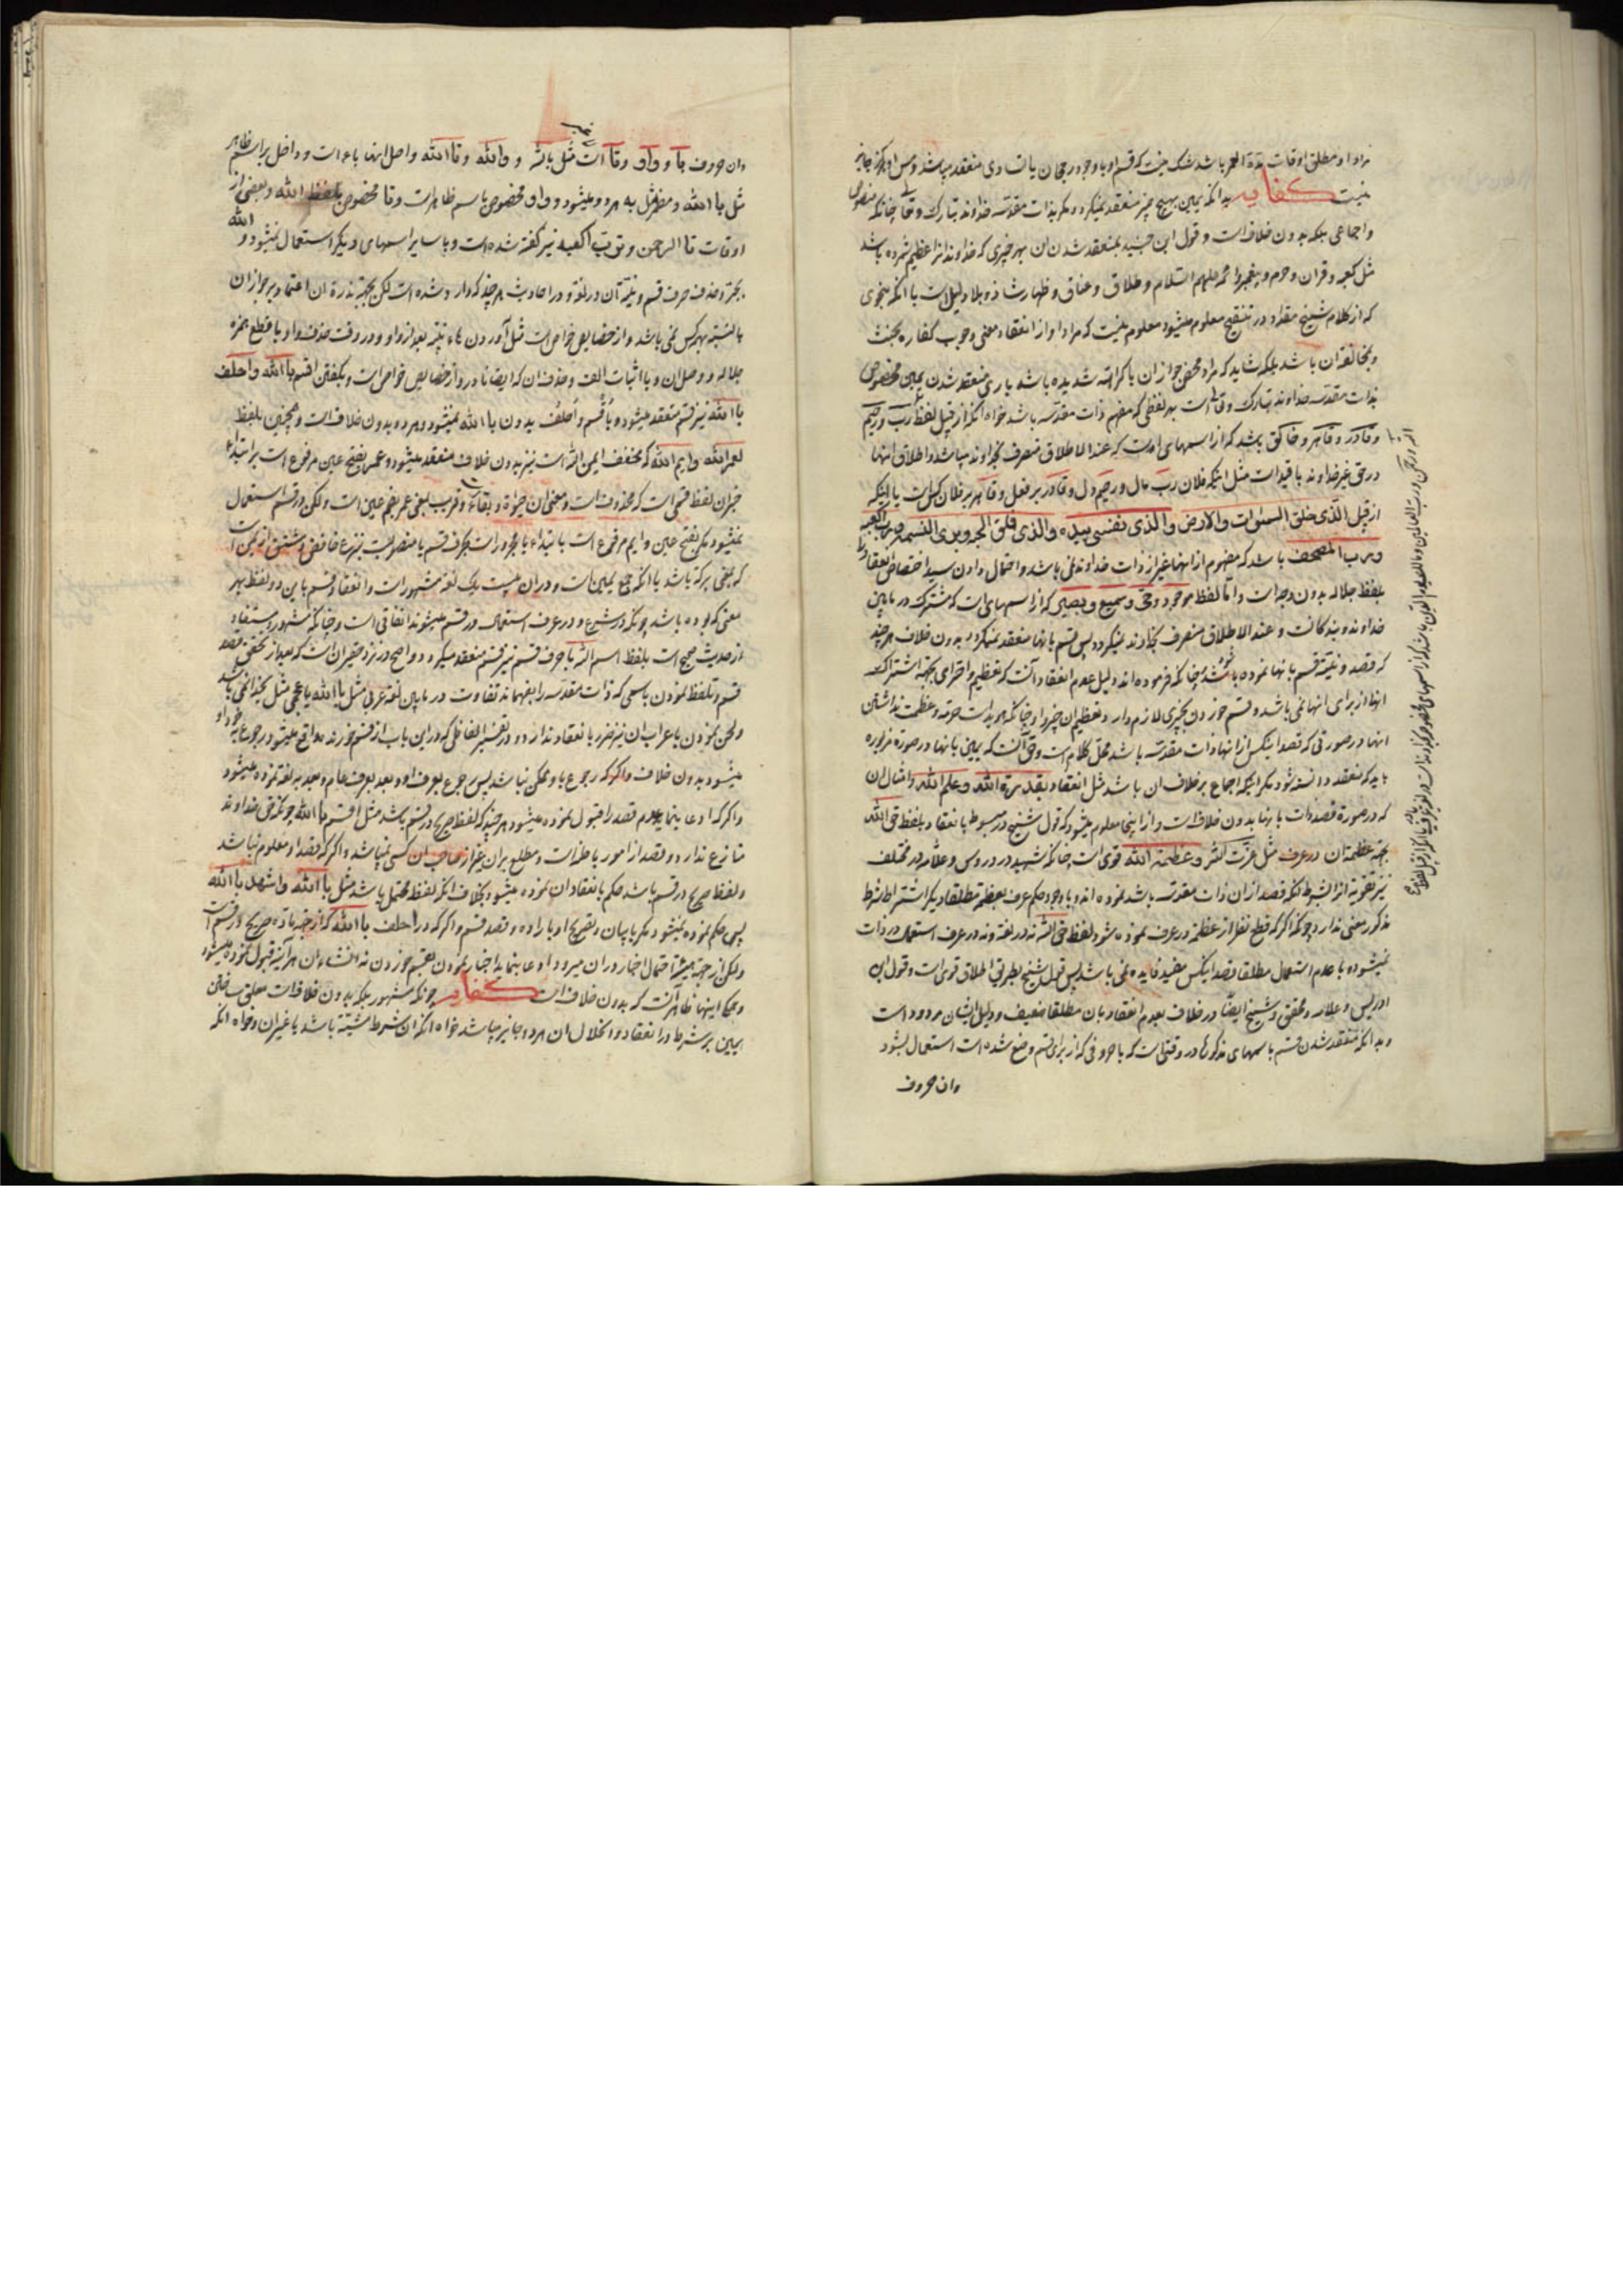 مراد او مطلق اوقات مدة العمر باشد شک نیست که قسم او با وجود رجحان یا تساوی منعقد میباشد و پس او هرگز جایز
نیست کفایه بدانکه یمین بهیچ چیز منعقد نمیگردد مگر بذات مقدسه خداوند تبارک و تعالی چنانکه منصوص
و اجماعی بلکه بدون خلافست و قول ابن جنید بمنعقد شدن ان بهر چیزی که خداوند انرا عظیم شمرده باشد
مثل کعبه و قران و حرم و پیغمبر و ائمه علیهم السلام و طلاق و عتاق و ظهار شاذ و بلا دلیل است با انکه بنحوی
که از کلام شیخ مقداد در تنقیح معلوم میشود معلوم نیست که مراد او از انعقاد معنی وجوب کفاره بحنث
و مخالفة ان باشد بلکه شاید که مراد محض جواز ان با کراهة شدیده باشد باری منعقد شدن یمین مخصوص
بذات مقدسه خداوند تبارک و تعالی است بهر لفظی که مفهم ذات مقدسه باشد خواه انکه از قبیل لفظ رب و رحیم
و قادر و قاهر و خالق باشد که از اسمهای اوست که عند الاطلاق منصرف بخداوند میباشد و اطلاق انها
در حق غیر خداوند با قید است مثل اینکه فلان رب مال و رحیم دل و قادر بر فعل و قاهر بر فلان کس است یا اینکه
از قبیل الذی خلق السموات والارض والذی نفسی بیده والذی فلق الحبة وبرئ النسمة و رب الکعبة
و رب المصحف باشد که مفهوم از انها غیر از ذات خداوند نمی باشد و احتمال دادن سید اختصاص انعقاد را
بلفظ جلاله بدون وجه است و اما لفظ موجود و حی و سمیع و بصیر که از اسمهای است که مشترک در مابین
خداوند و بندگانست و عند الاطلاق منصرف بخداوند نمیگردد پس قسم بانها منعقد نمیگردد بدون خلاف هر چند
که قصد و نیة قسم بانها نموده باشد چنانکه فرموده اند و دلیل عدم انعقاد آنست که تعظیم و احترامی بجهة اشتراک
انها از برای انها نمی باشد و قسم خوردن بچیزی لازم دارد تعظیم ان چیز را و چنانکه هویداست حرمة و عظمت نداشتن
انها در صورتی که قصد اینکس از انها ذات مقدسه باشد محل کلام است و حق آنست که یمین بانها در صورة مزبوره
باید که منعقد دانسته شود مگر اینکه اجماع بر خلاف ان باشد مثل انعقاد بقدرة الله و علم الله و امثال ان
که در صورة قصد ذات بانها بدون خلافست و از اینجا معلوم میشود که قول شیخ در مبسوط بانعقاد بلفظ حق الله
بجهة عظمة ان در عرف مثل عزت الله و عظمة الله قوی است چنانکه شهید در دروس و علامه در مختلف
نیز تقویة انرا بشرط انکه قصد از ان ذات مقدسه باشد نموده اند و با وجود حکم عرف بعظمة مطلقا دیگر اشتراط شرط
مذکور معنی ندارد چونکه اگر که قطع نظر از عظمة در عرف نموده شود لفظ حق الله نه در لغة و نه در عرف استعمال در ذات
نمیشود و با عدم استعمال مطلقا قصد اینکس مفید فایده نمی باشد پس قول شیخ بطریق اطلاق قوی است و قول ابن
ادریس و علامه و محقق و شیخ ایضا در خلاف بعدم انعقاد بان مطلقا ضعیف و دلیل ایشان مردود است
و بدانکه منعقد شدن قسم باسمهای مذکوره در وقتی است که با حروفی که از برای قسم وضع شده است استعمال بشود
وان حروف
وان حروف با و واو و تا است مثل بالله و والله و تالله و اصل انها باء است و داخل بر اسم ظاهر
مثل بالله و مضمر مثل به هر دو میشود و واو مخصوص باسم ظاهر است و تا مخصوص بلفظ الله و بعضی از
اوقات تا الرحمن و ترب الکعبه نیز گفته شده است و با سایر اسمهای دیگر استعمال نمیشود و الله
بجر و حذف حرف قسم و نیة آن در لغة و در احادیث هر چند که وارد شده است لکن بجهة ندرة ان اعتماد بر جواز ان
بالنسبة بهر کس نمی باشد و از خصایص خواص است مثل آوردن هاء تنبیه بعد از واو و در وقت حذف واو با قطع همزه
جلاله و وصل ان و با اثبات الف و حذف ان که ایضا نادر و از خصایص خواص است و بگفتن اقسم بالله و احلف
بالله نیز قسم منعقد میشود و با اقسم و احلف بدون بالله نمیشود و هر دو بدون خلافست و همچنین بلفظ
لعمر الله و ایم الله که مخفف ایمن الله است نیز بدون خلاف منعقد میشود و عمر بفتح عین مرفوع است بر ابتداء
خبر ان لفظ قسمی است که محذوفست و معنی ان حیوة و بقاء و قریب بمعنی عمر بضم عین است و لکن در قسم استعمال
نمیشود مگر بفتح عین و ایم مرفوع است بابتداء یا مجرور است بحرف قسم یا منصوبست بنزع خافض و مشتق از یمن است
که بمعنی برکة باشد یا انکه جمع یمین است و در ان بیست و یک لغة مشهور است و انعقاد قسم باین دو لفظ بهر
معنی که بوده باشد چونکه در شرع و در عرف استعمال در قسم میشوند اتفاقی است و چنانکه مشهور و مستفاد
از حدیث صحیح است بلفظ اسم الله با حرف قسم نیز قسم منعقد میگردد و واضح در نزد حقیر ان است که بعد از تحقق قصد
قسم و تلفظ نمودن باسمی که ذات مقدسه را بفهماند تفاوت در مابین لغة عربی مثل بالله یا عجمی مثل بخدا نمی باشد
و لحن نمودن باعراب ان نیز ضرر بانعقاد ندارد و در تفسیر الفاظی که در این باب از قسم خورنده واقع میشود رجوع بقصد او
میشود بدون خلاف و اگر که رجوع باو ممکن نباشد پس رجوع بعرف او و بعد بعرف عام و بعد به لغة نموده میشود
و اگر که ادعا بنماید عدم قصد را قبول نموده میشود هر چند که لفظ صریح در قسم باشد مثل اقسم بالله چونکه حق خداوند
منازع ندارد و قصد از امور باطنه است و مطلع بر ان غیر از صاحب ان کسی نمیباشد و اگر که قصد او معلوم نباشد
و لفظ صریح در قسم باشد حکم بانعقاد ان نموده میشود بخلاف انکه لفظ محتمل باشد مثل بالله و اشهد بالله
پس حکم نموده نمیشود مگر با بیان و تصریح او باراده و قصد قسم و اگر که در احلف بالله که از جهة ماده صریح در قسم است
و لکن از جهة هیئة احتمال اخبار در ان میرود ادعا بنماید اخبار نمودن بقسم خوردن نه انشاء ان هر آینه قبول نموده میشود
و حکم اینها ظاهر آنست که بدون خلاف است کفایه چونکه مشهور بلکه بدون خلافست معلق ساختن
یمین بر شرط در انعقاد و انحلال ان هر دو جایز میباشد خواه انکه ان شرط مشیة باشد یا غیر ان و خواه انکه